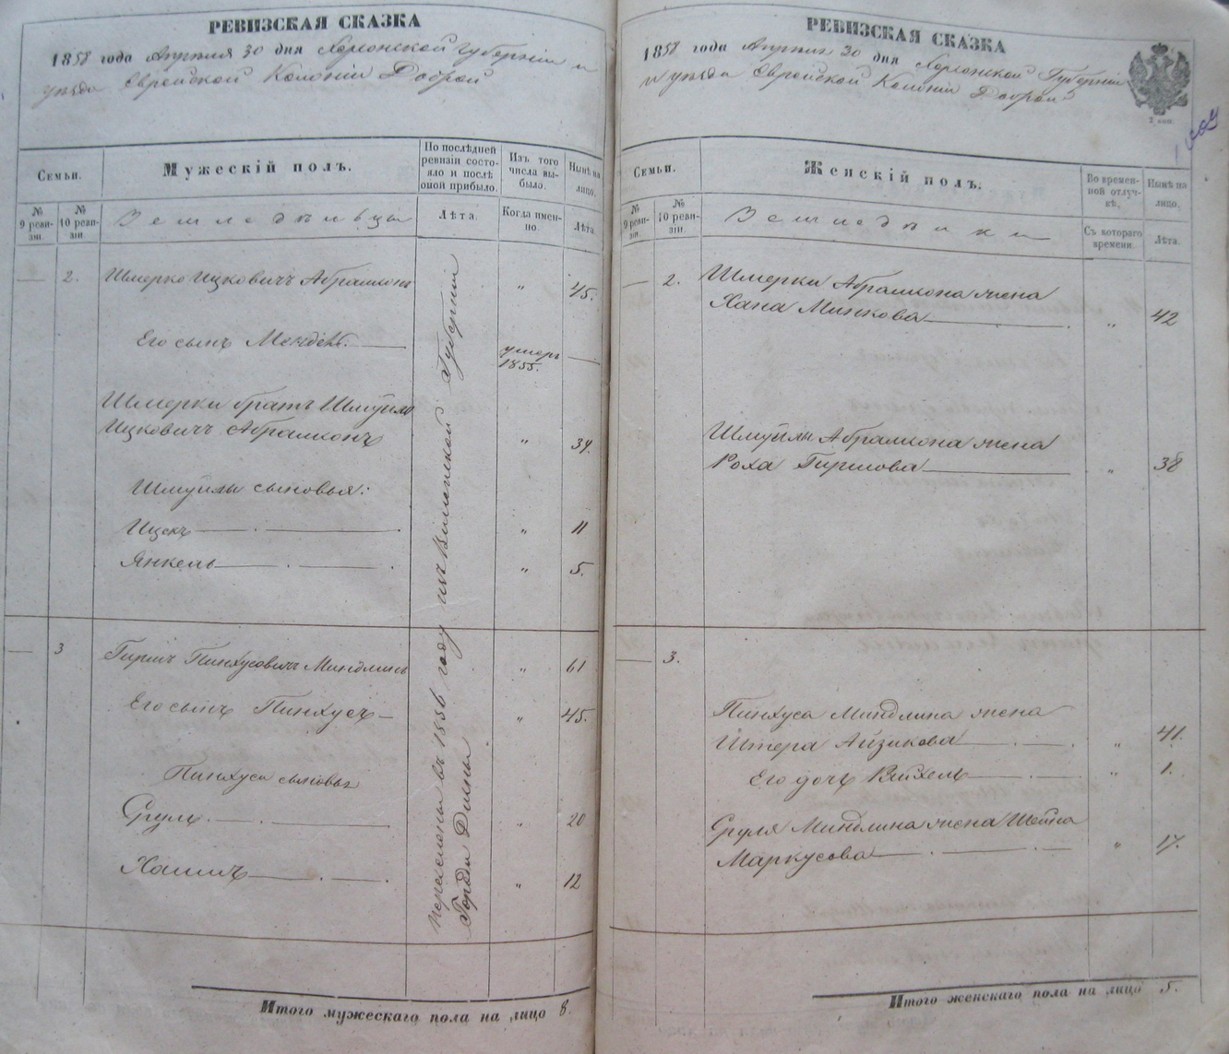 РЕВИЗСКАЯ СКАЗКА
1858 года Апреля 30 дня Херсонской Губернии и
уезда Еврейской Колонии Доброй
Семьи.
Мужескій полъ.
По последней
ревизіи состо-
яло и послѣ
оной прибыло.
Изъ того
числа вы-
было.
Нынѣ на
лицо.
№
9 реви-
зіи.
№
10 реви-
зіи.
Земледѣльцы
Лѣта.
Когда имен-
но.
Лѣта.
— 2. Шмерко Ицковичъ Абрамсонъ „ 45.
Его сынъ Мендель умеръ
1855. —
Шмерки братъ Шмуйло
Ицковичъ Абрамсонъ „ 34.
Шмуйлы сыновья:
Ицекъ „ 11
Янкель „ 5.
— 3 Гиршъ Пинхусовичъ Миндлинъ „ 61
Его сынъ Пинхусъ „ 45.
Пинхуса сыновья
Сруль „ 20
Хаимъ „ 12
Переселены въ 1856 году изъ Виленской Губерніи
Города Дисны
Итого мужескаго пола на лицо 8.
РЕВИЗСКАЯ СКАЗКА
1858 года Апреля 30 дня Херсонской Губерніи
и уезда Еврейской Колоніи Доброй
2 коп.
Семьи.
Женскій полъ.
Во времен-
ной отлуч-
кѣ.
Нынѣ на
лицо.
№
9 реви-
зіи.
№
10 реви-
зіи.
Съ котораго
времени.
Лѣта.
— 2. Шмерки Абрамсона жена
Хана Минкова „ 42
Шмуйлы Абрамсона жена
Роха Гиршова „ 38
— 3.
Пинхуса Миндлина жена
Штера Айзикова „ 41.
Его дочь Рейхель „ 1.
Сруля Миндлина жена Шейна
Маркусова „ 17.
Итого женскаго пола на лицо 5.